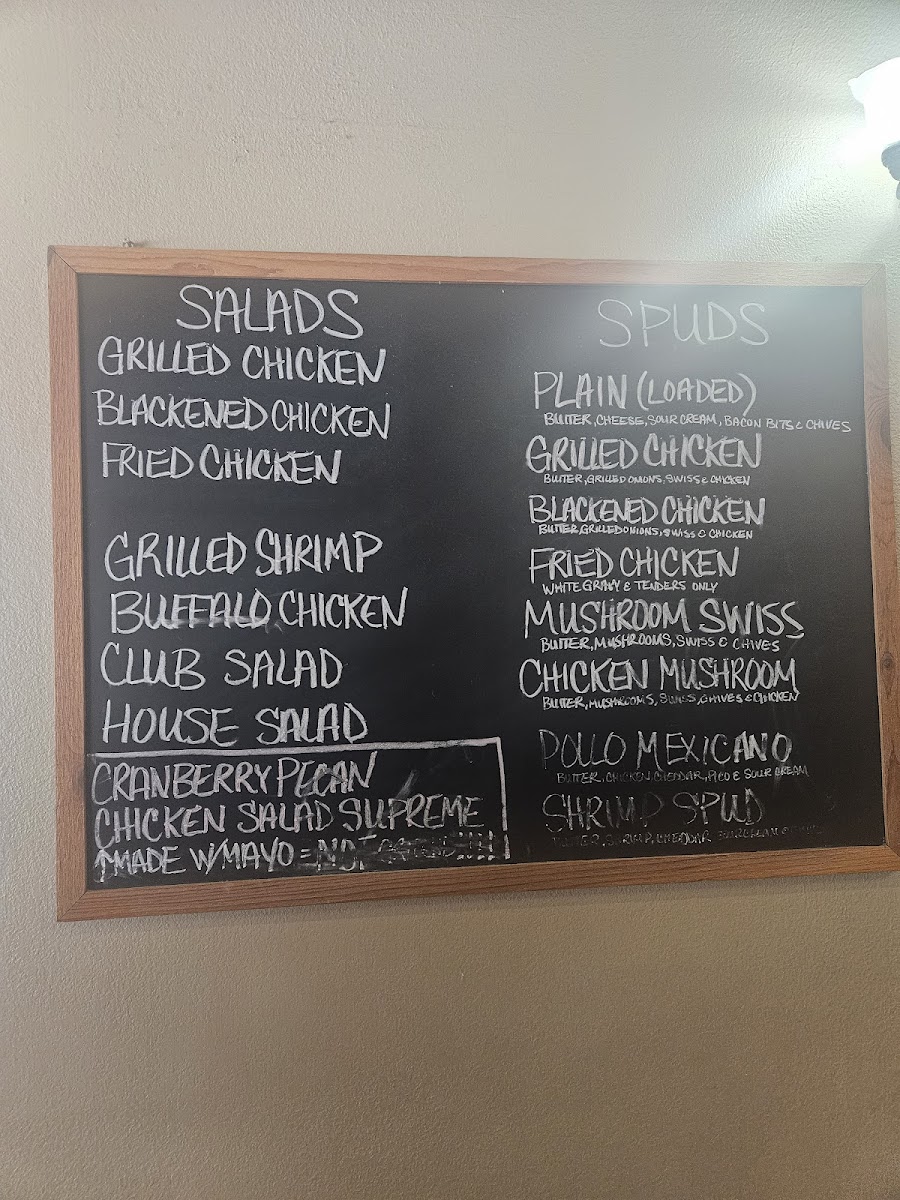 SALADS
GRILLED CHICKEN
BLACKENED CHICKEN
FRIED CHICKEN
GRILLED SHRIMP
BUFFALO CHICKEN
CLUB SALAD
HOUSE SALAD
CRANBERRY PECAN
CHICKEN SALAD SUPREME
MADE W/MAYO = NOT
SPUDS
PLAIN (LOADED)
BUTTER, CHEESE, SOUR CREAM, BACON BITS & CHIVES
GRILLED CHICKEN
BUTTER, GRILLED ONIONS, SWISS & CHICKEN
BLACKENED CHICKEN
BUTTER, GRILLED ONIONS, SWISS & CHICKEN
FRIED CHICKEN
WHITE GRAVY & TENDERS ONLY
MUSHROOM SWISS
BUTTER, MUSHROOMS, SWISS & CHIVES
CHICKEN MUSHROOM
BUTTER, MUSHROOMS, SWISS, CHIVES & CHICKEN
POLLO MEXICANO
BUTTER, CHICKEN, CHEDDAR, PICO & SOUR CREAM
SHRIMP SPUD
BUTTER, SHRIMP, CHEDDAR, SOUR CREAM &